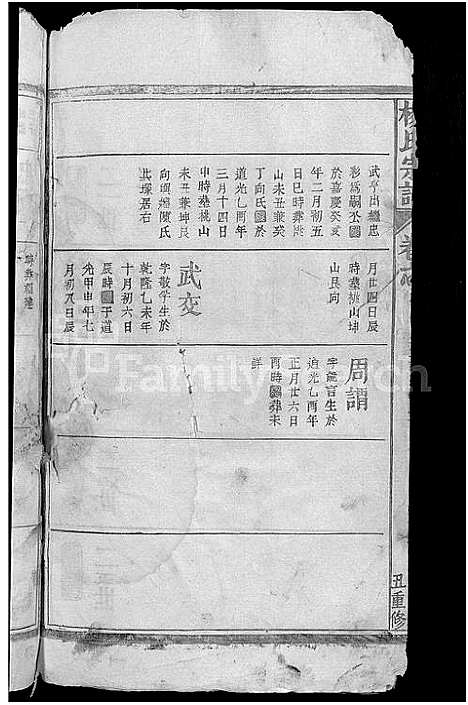 楊氏宗譜
丑重修
武亨出繼忠
彩為嗣
於嘉慶癸亥
年二月初五
日巳時葬
山未丑兼癸
丁向氏歿於
道光乙酉年
三月十四日
申時墓桃山
未丑兼坤艮
向與繼陳氏
北塚居右
月廿四日辰
時墓桃山坤
山艮向
武交
字敬学生於
乾隆乙未年
十月初六日
辰時歿于道
光甲申年七
月初八日辰
周謂
字龍言生於
道光乙酉年
正月廿六日
酉時歿葬未
詳
FamilySearch